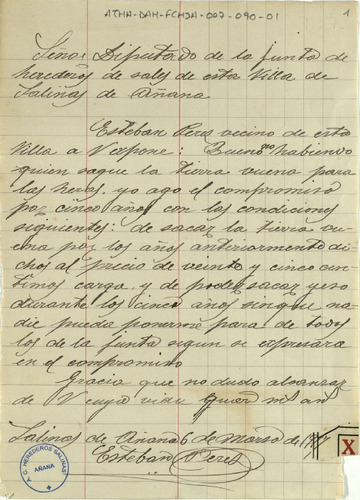 ATHA-DAH-FCHJA-007-090-01
1
Señor Diputado de la junta de
herederos de sales de esta Villa de
Salinas de Añana
Esteban Peres vecino de esta
Villa a V expone: Bueno habiendo
quien saque la tierra buena para
las heras. yo ago el compromiso
por cinco años con las condicions
sigientes: de sacar la tierra vu
ena por los años anteriormente di
chos al precio de veinte y cinco cen
timos carga. y de poder sacar yeso
durante los cinco años sin que na
die pueda ponerme para de todos
los de la junta sigun se expresara
en el compromiso
Gracia que no dudo alcanzar
de V cuya vida guar m s an
Salinas de Añana 6 de Marzo de
Esteban Peres
A.C. HEREDEROS SALINAS
AÑANA
X